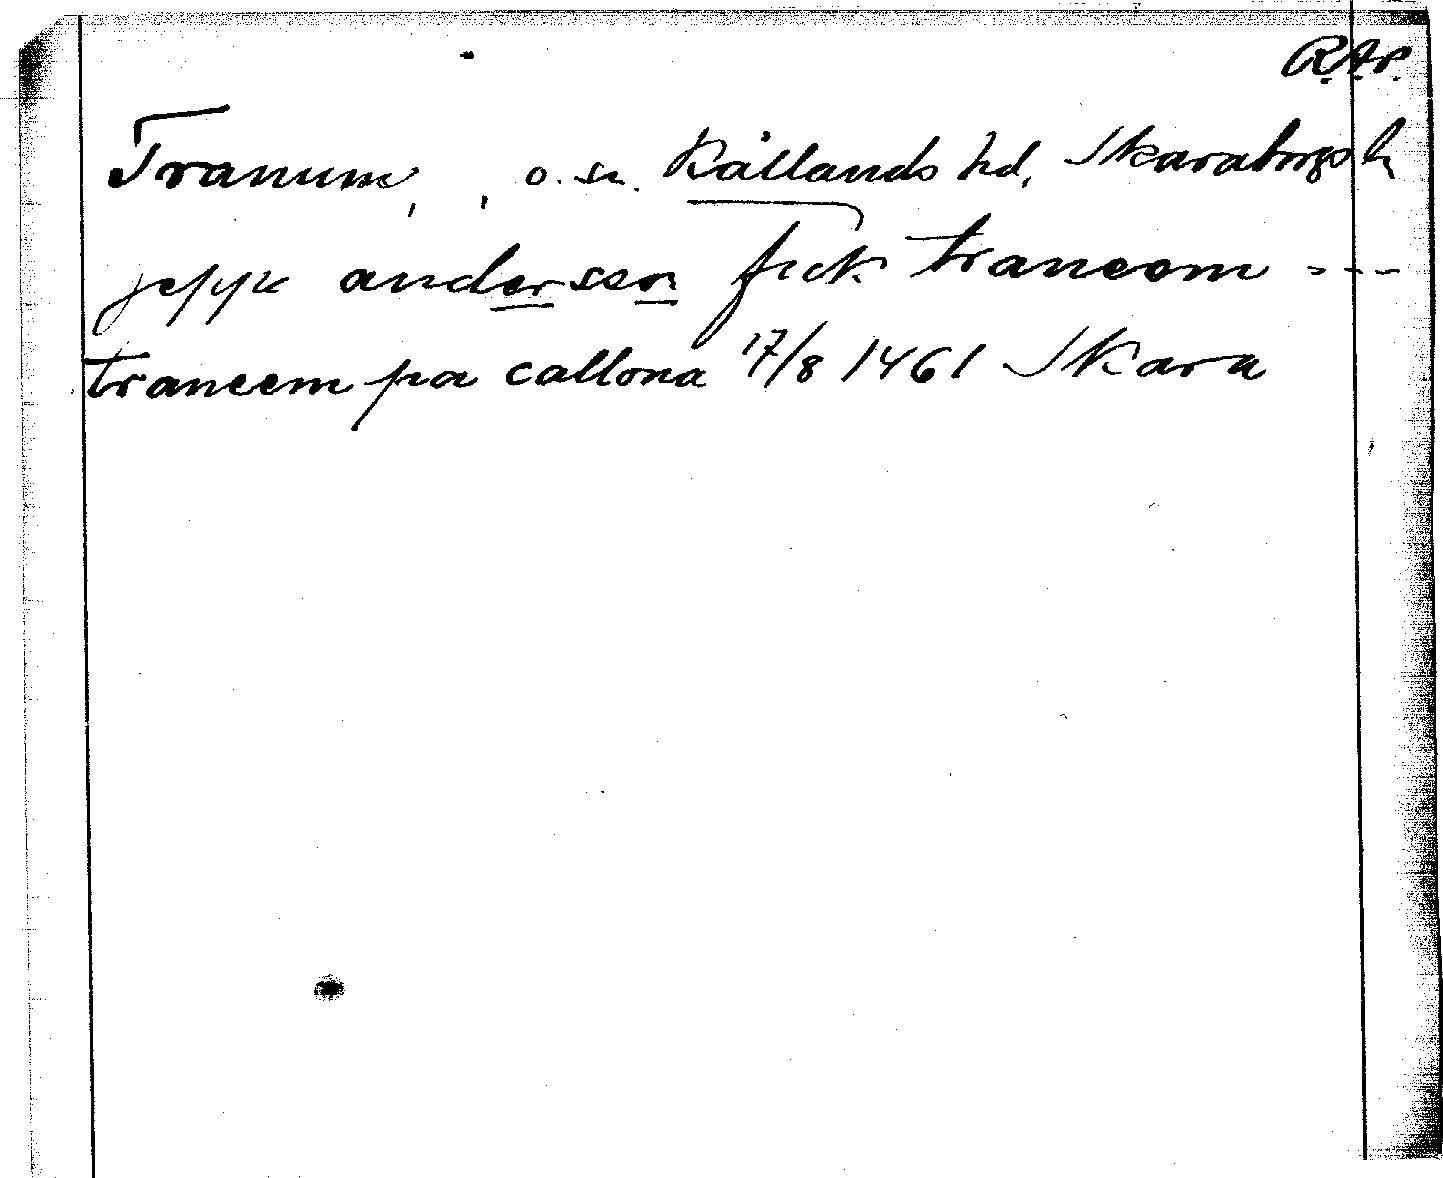 R.A.P.
Tranum, , o. sn. Kållands hd, Skaraborgs l.
jepp andersen fick traneom ---
traneem pa callona 17/8 1461 Skara